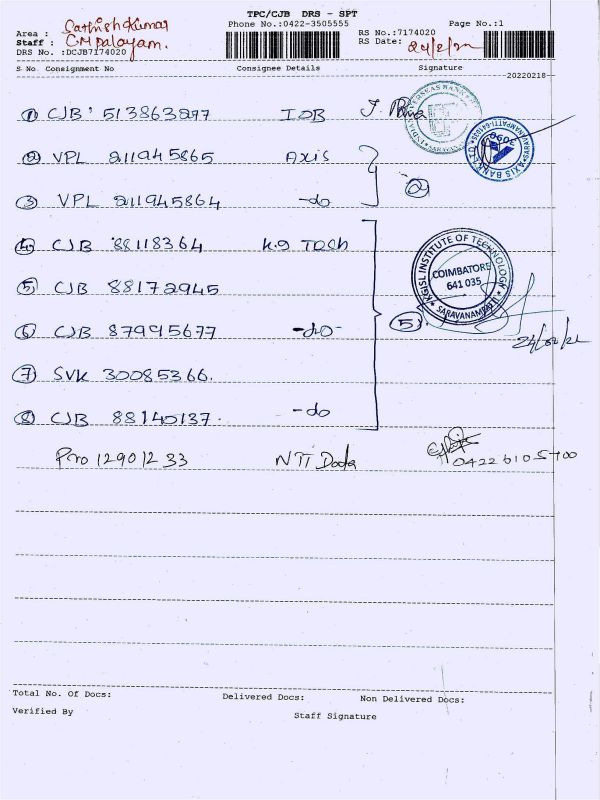 TPC/CJB DRS - SPT
Area : Sathishkumar Phone No.:0422-3505555 Page No.:1
Staff : C.M palayam. RS No.:7174020
DRS No. :DCJB7174020 RS Date: 24/2/22
S No Consignment No Consignee Details Signature
20220218
① CJB 513863897 IOB
② VPL 211945865 Axis
③ VPL 211945864 -do ②
④ CJB 88118364 K.G TECH
⑤ CJB 88172945
⑥ CJB 87995677 -do- ⑤
⑦ SVK 30085366.
⑧ CJB 88140137. -do
Pro 129012 33 NTT Data
04226105700
OVERSEAS BANK
SARAVANAMPATTI-641035
AXIS BANK LTD
3090
KGISL INSTITUTE OF TECHNOLOGY
COIMBATORE
641 035
SARAVANAMPATTI
24/02/22
Total No. Of Docs: Delivered Docs: Non Delivered Docs:
Verified By Staff Signature